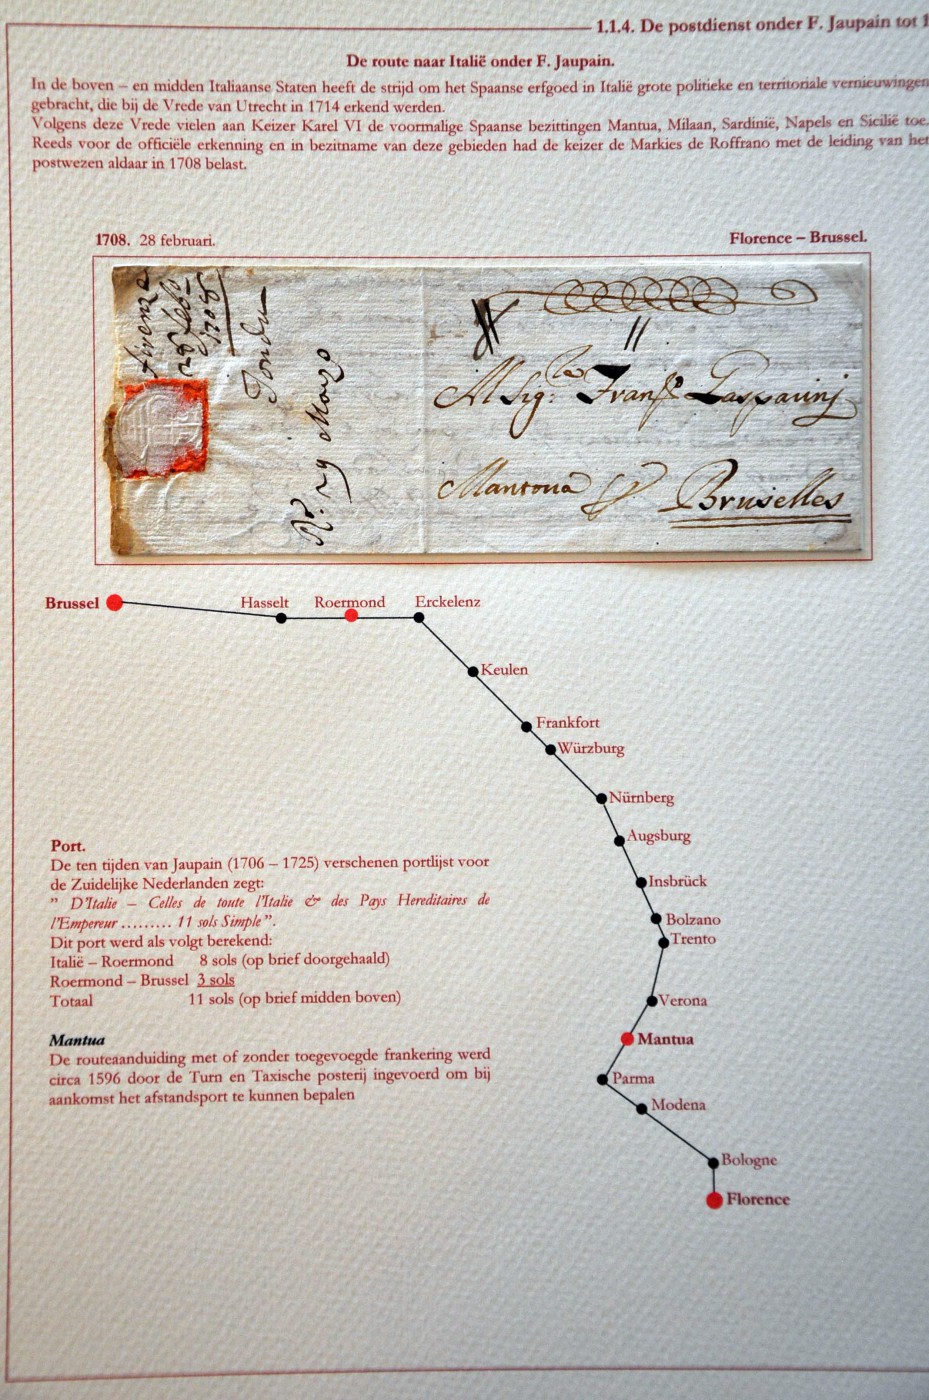 1.1.4. De postdienst onder F. Jaupain tot 1
De route naar Italië onder F. Jaupain.
In de boven – en midden Italiaanse Staten heeft de strijd om het Spaanse erfgoed in Italië grote politieke en territoriale vernieuwingen
gebracht, die bij de Vrede van Utrecht in 1714 erkend werden.
Volgens deze Vrede vielen aan Keizer Karel VI de voormalige Spaanse bezittingen Mantua, Milaan, Sardinië, Napels en Sicilië toe.
Reeds voor de officiële erkenning en in bezitname van deze gebieden had de keizer de Markies de Roffrano met de leiding van het
postwezen aldaar in 1708 belast.
1708. 28 februari.
Florence – Brussel.
firenza
28 feb
1708
29 Marzo
Mantova
Bruselles
Brussel
Hasselt
Roermond
Erckelenz
Keulen
Frankfort
Würzburg
Nürnberg
Augsburg
Insbrück
Bolzano
Trento
Verona
Mantua
Parma
Modena
Bologne
Florence
Port.
De ten tijden van Jaupain (1706 – 1725) verschenen portlijst voor
de Zuidelijke Nederlanden zegt:
" D'Italie – Celles de toute l'Italie & des Pays Hereditaires de
l'Empereur ......... 11 sols Simple ".
Dit port werd als volgt berekend:
Italië – Roermond 8 sols (op brief doorgehaald)
Roermond – Brussel 3 sols
Totaal 11 sols (op brief midden boven)
Mantua
De routeaanduiding met of zonder toegevoegde frankering werd
circa 1596 door de Turn en Taxische posterij ingevoerd om bij
aankomst het afstandsport te kunnen bepalen